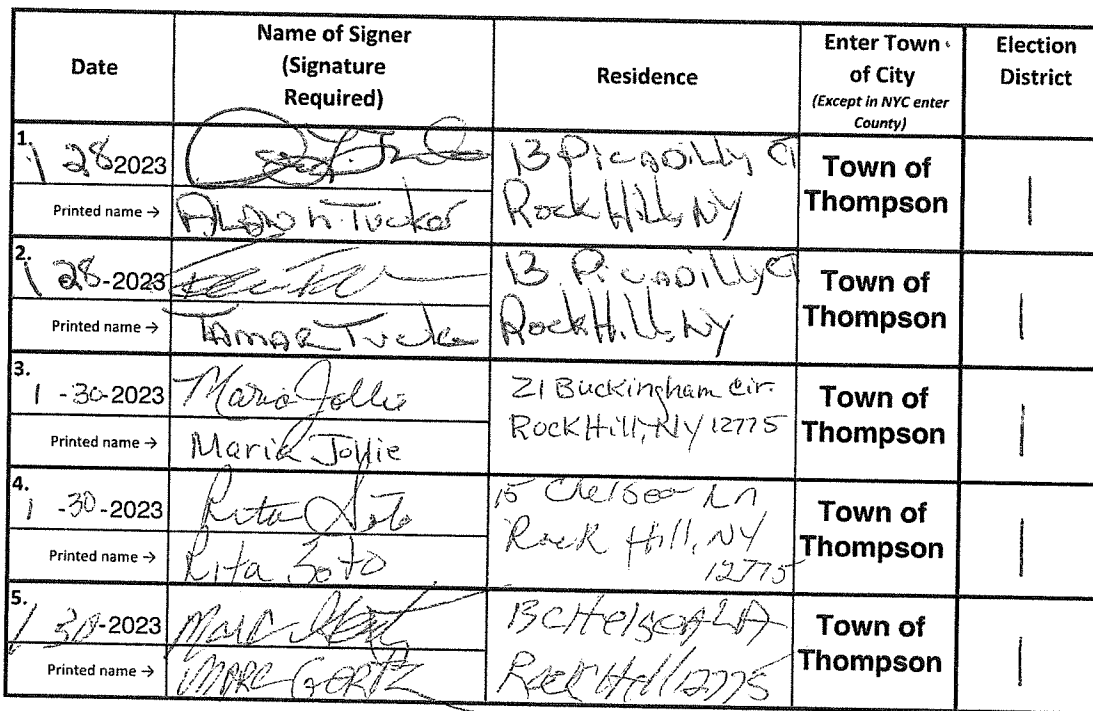 Date
Name of Signer
(Signature
Required)
Residence
Enter Town
of City
(Except in NYC enter
County)
Election
District
1.
1 28 2023
13 PicaDilly CT
Rock Hill, NY
Town of
Thompson
1
Printed name →
ALAN N. Tucker
2.
1 28-2023
13 PicaDilly CT
Rock Hill, NY
Town of
Thompson
1
Printed name →
TAMAR Tucker
3.
1 -30-2023
Maria Jollie
21 Buckingham Cir.
Rock Hill, NY 12775
Town of
Thompson
1
Printed name →
Maria Jollie
4.
1 -30-2023
Rita Soto
15 Chelsea Ln
Rock Hill, NY
12775
Town of
Thompson
1
Printed name →
Rita Soto
5.
1 30-2023
Marc Gertz
13 CHelseA LA
Rock Hill 12775
Town of
Thompson
1
Printed name →
MARC GERTZ